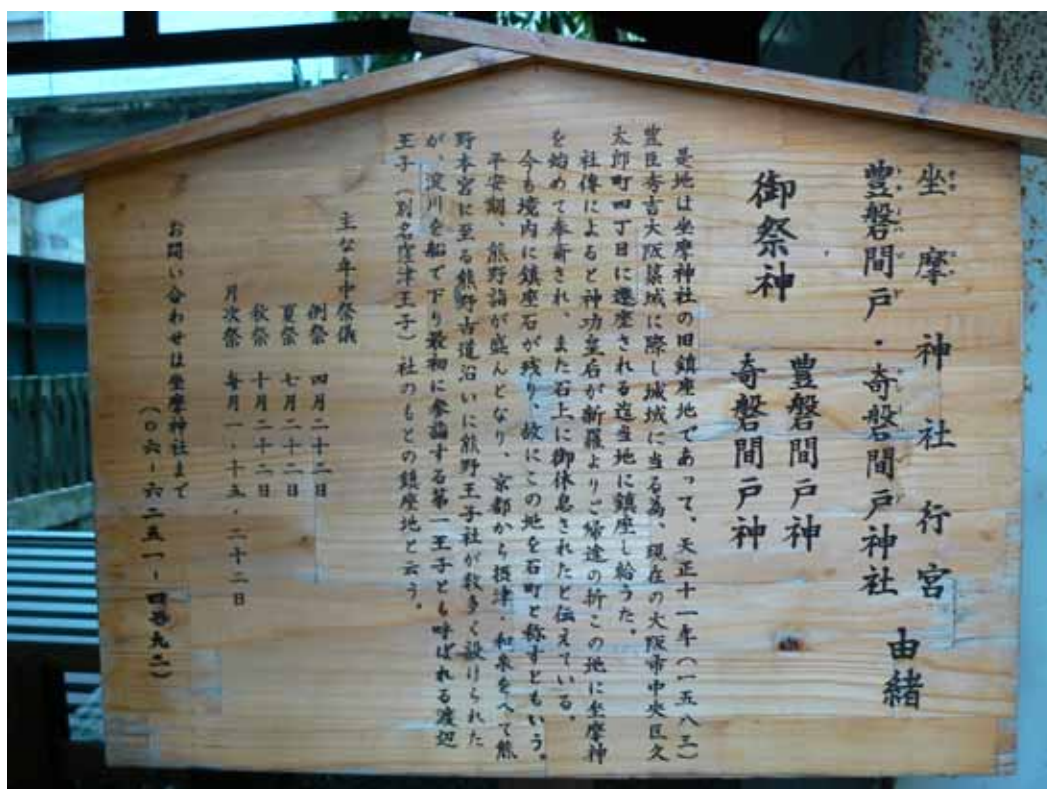 坐摩神社行宮
豊磐間戸・奇磐間戸神社
由緒
御祭神
豊磐間戸神
奇磐間戸神
是地は坐摩神社の旧鎮座地であって、天正十一年(一五八三)
豊臣秀吉大阪築城に際し城域に当る為、現在の大阪市中央区久
太郎町四丁目に遷座される迄当地に鎮座し給うた。
社傳によると神功皇后が新羅よりご帰途の折この地に坐摩神
を始めて奉斎され、また石上に御休息されたと伝えている。
今も境内に鎮座石が残り、故にこの地を石町と称すともいう。
平安期、熊野詣が盛んとなり、京都から摂津・和泉をへて熊
野本宮に至る熊野古道沿いに熊野王子社が数多く設けられた
が、淀川を船で下り最初に参詣する第一王子とも呼ばれる渡辺
王子(別名窪津王子)社のもとの鎮座地と云う。
主な年中祭儀
例祭 四月二十二日
夏祭 七月二十二日
秋祭 十月二十二日
月次祭 毎月一・十五・二十二日
お問い合わせは坐摩神社まで
(〇六-六二五一-四七九二)